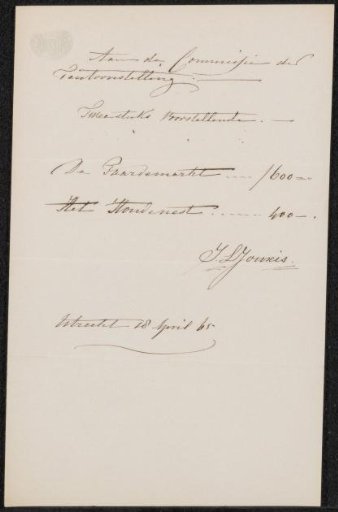 Aan de Commissie der
Tentoonstelling
Twee stuks Voorstellende
De Paardemarkt .... f600–
Het Hondenest ...... 400–.
J L Jonxis.
Utrecht 18 April 65